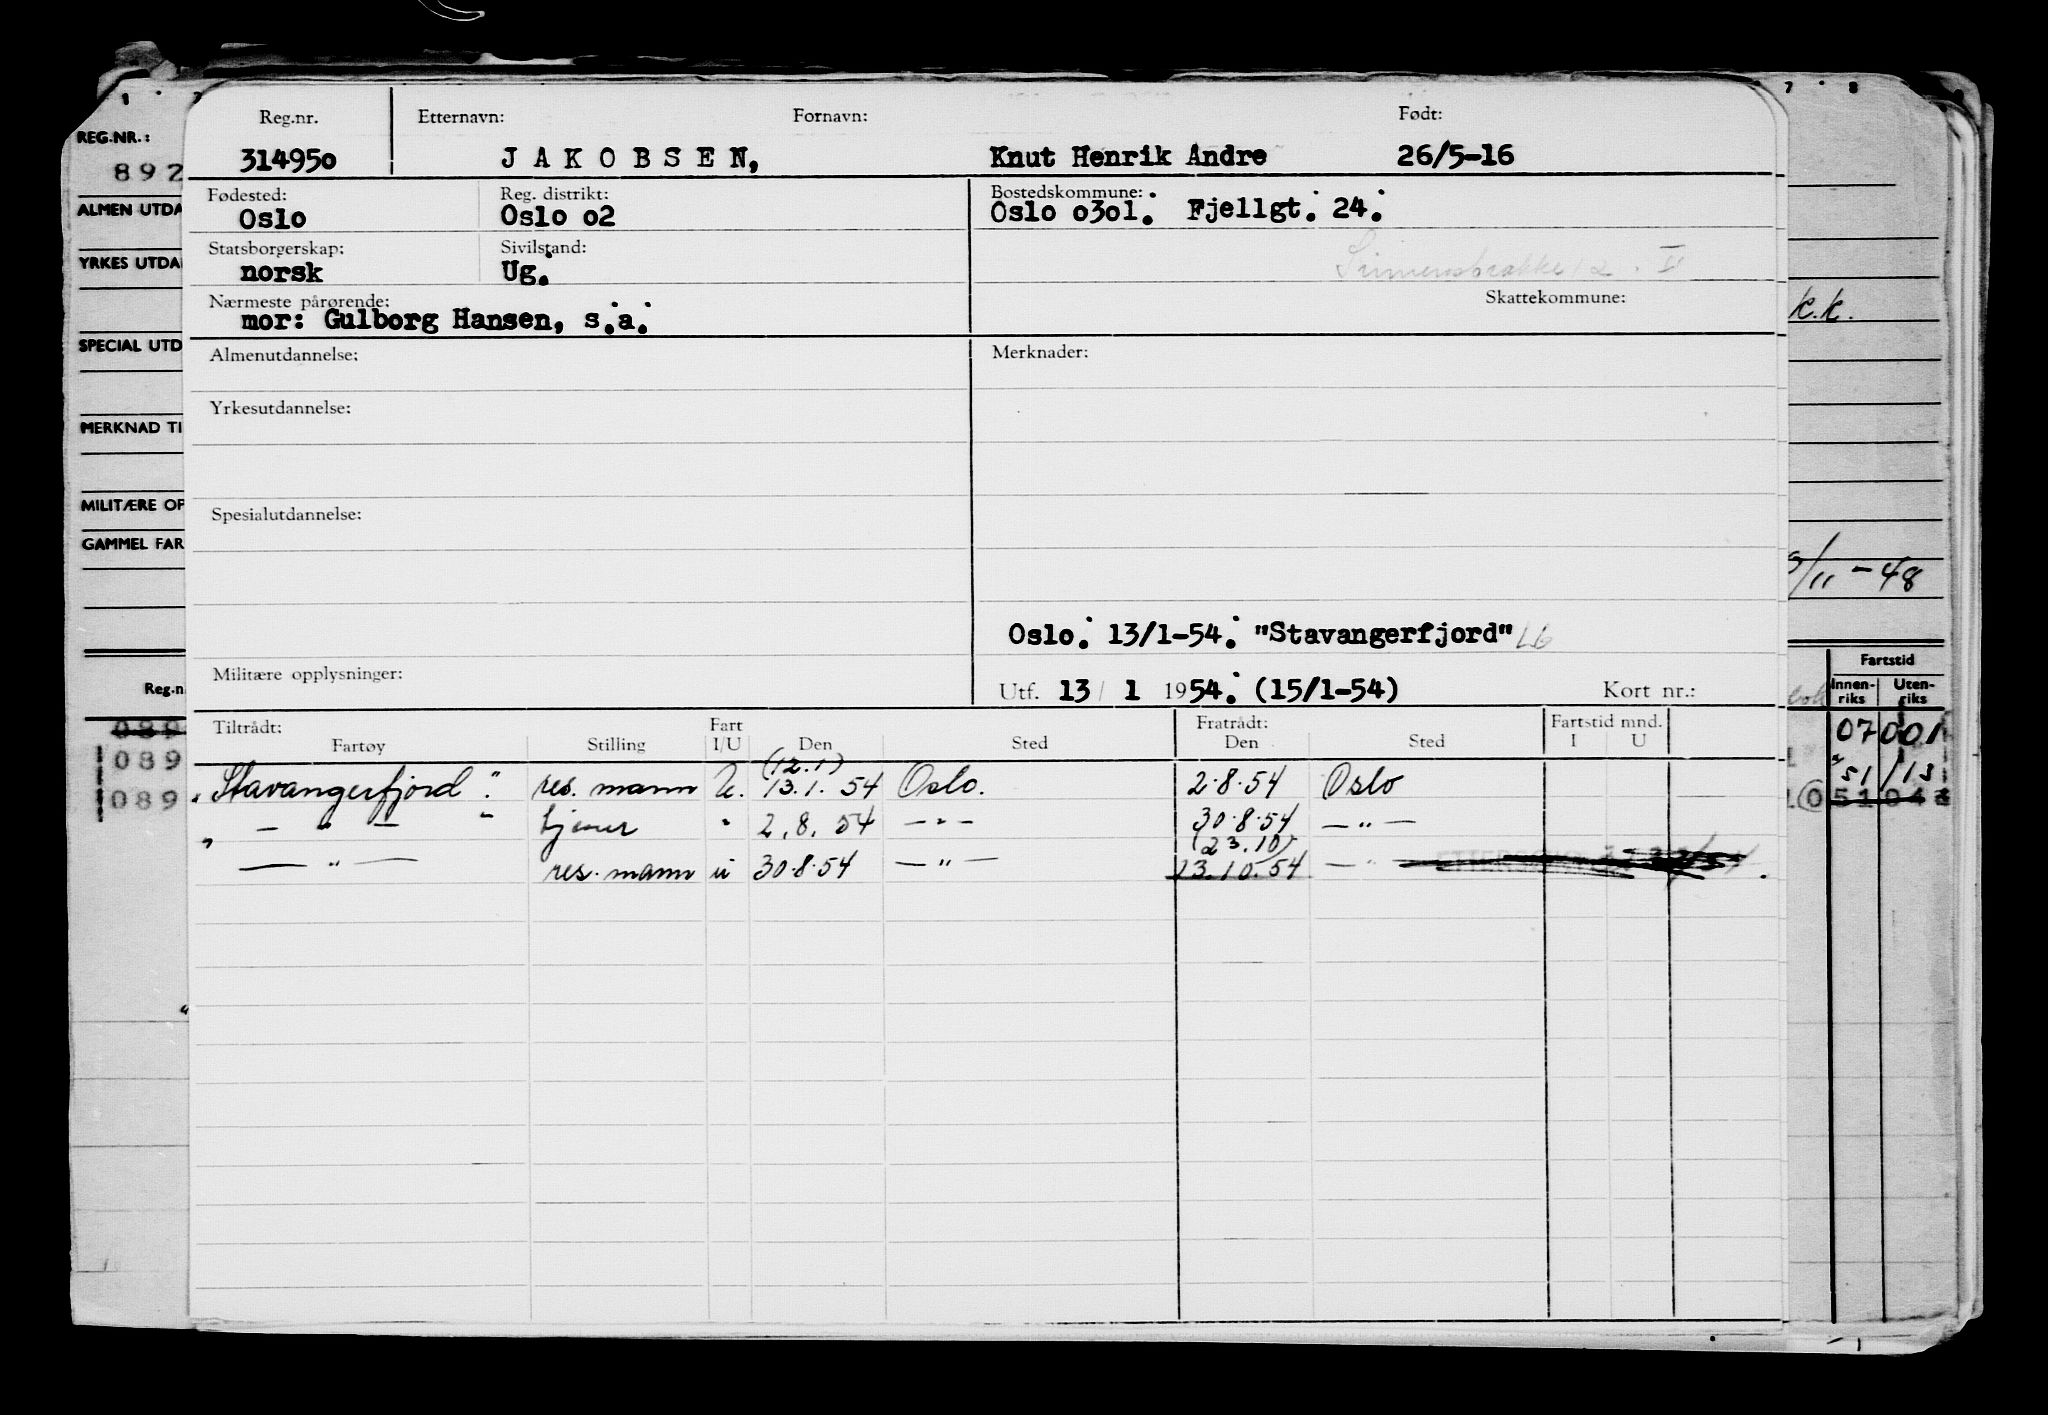 Reg.nr. Etternavn: Fornavn: Født:
314950 JAKOBSEN, Knut Henrik Andre 26/5-16
Fødested: Reg. distrikt: Bostedskommune:
Oslo Oslo 02 Oslo 0301. Fjellgt. 24.
Statsborgerskap: Sivilstand:
norsk Ug.
Nærmeste pårørende: Skattekommune:
mor: Gulborg Hansen, s.a.
Almenutdannelse: Merknader:
Yrkesutdannelse:
Spesialutdannelse:
Oslo. 13/1-54. "Stavangerfjord"
Militære opplysninger:
Utf. 13/1 1954. (15/1-54) Kort nr.:
Tiltrådt: Fart Fratrådt: Fartstid mnd.
Fartøy Stilling I/U Den Sted Den Sted I U
(12.1)
"Stavangerfjord". res. mann U. 13.1.54 Oslo. 2.8.54 Oslo
" — " — " tjener " 2.8.54 — " — 30.8.54 — " —
(23.10)
— " — res. mann u 30.8.54 — " — 23.10.54 — "
REG.NR.:
892
ALMEN UTDA
YRKES UTDA
SPECIAL UTD
MERKNAD TI
MILITÆRE OP
GAMMEL FAR
Reg.n
089
089
089
7 8
k.k.
/11-48
Fartstid
Innen-riks Uten-riks
07 001
51 / 13
51 04